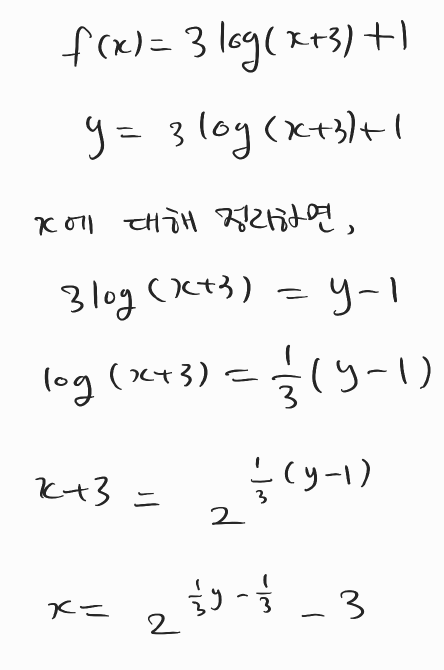 f(x) = 3 log(x+3) + 1
y = 3 log (x+3) + 1
x에 대해 정리하면,
3 log (x+3) = y - 1
log (x+3) = 1/3 (y - 1)
x+3 = 2^{1/3 (y-1)}
x = 2^{1/3 y - 1/3} - 3